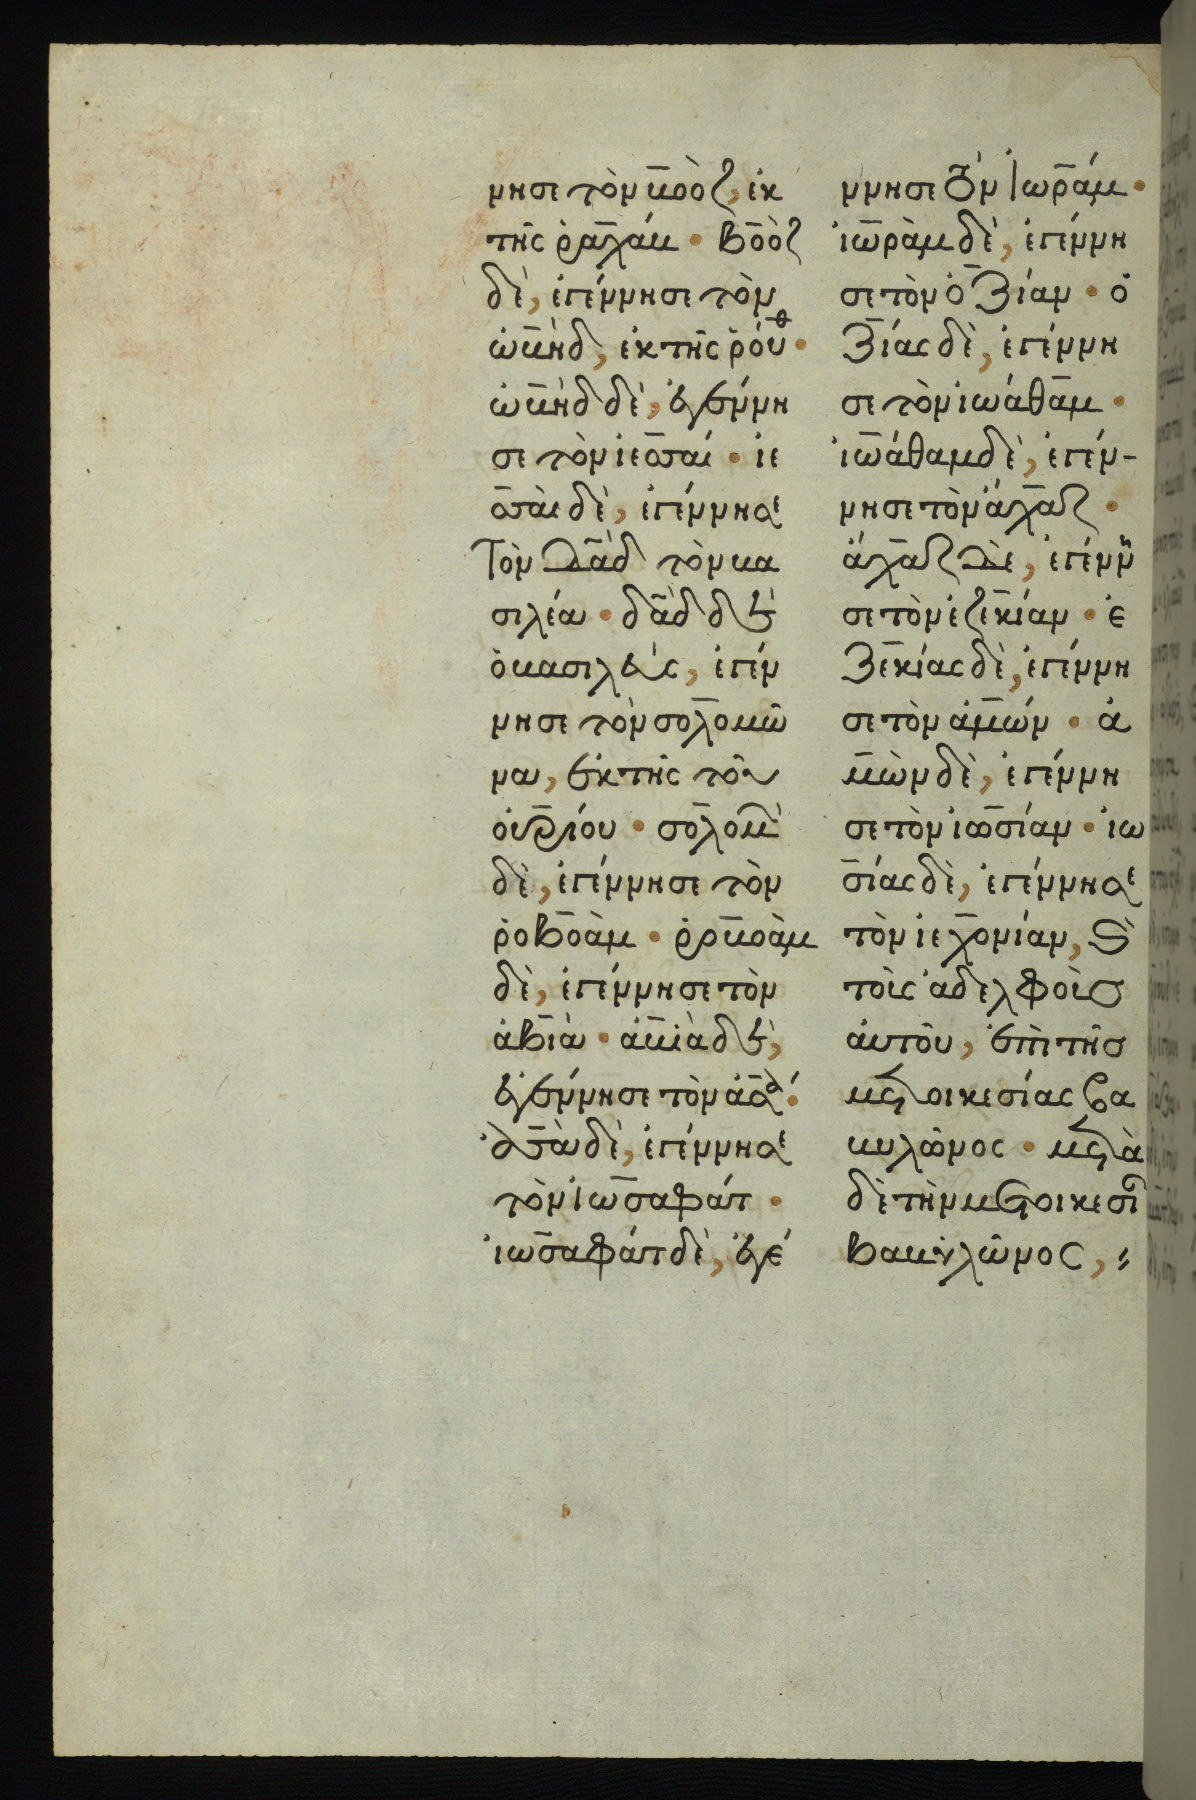 νησε τὸν βοὸζ, ἐκ
τῆς ῥαχάβ · βοὸζ
δὲ, ἐγέννησε τὸν
ὠβήδ, ἐκ τῆς ῥούθ ·
ὠβὴδ δὲ, ἐγέννη
σε τὸν ἰεσσαί · ἰε
σσαὶ δὲ, ἐγέννησε
Τὸν δαδ τὸν βα
σιλέα · δαδ δὲ
ὁ βασιλεὺς, ἐγέν
νησε τὸν σολομῶ
να, ἐκ τῆς τοῦ
οὐρίου · σολομ δὲ, ἐγέννησε τὸν
ῥοβοὰμ · ῥοβοὰμ
δὲ, ἐγέννησε τὸν
ἀβιὰ · ἀβιὰ δὲ,
ἐγέννησε τὸν ἀσά ·
ἀσὰ δὲ, ἐγέννησε
τὸν ἰωσαφάτ ·
ἰωσαφάτ δὲ, ἐγέ
ννησε τὸν ἰωράμ ·
ἰωρὰμ δὲ, ἐγέννη
σε τὸν ὀζίαν · ὀ
ζίας δὲ, ἐγέννη
σε τὸν ἰωάθαμ ·
ἰωάθαμ δὲ, ἐγέν-
νησε τὸν ἄχαζ ·
ἄχαζ δὲ, ἐγέννη
σε τὸν ἐζεκίαν · ἐ
ζεκίας δὲ, ἐγέννη
σε τὸν ἀμών · ἀ
μὼν δὲ, ἐγέννη
σε τὸν ἰωσίαν · ἰω
σίας δὲ, ἐγέννησε
τὸν ἰεχονίαν, καὶ
τοὺς ἀδελφοὺς
αὐτοῦ, ἐπὶ τῆς
μετοικεσίας βα
βυλῶνος · μετὰ
δὲ τὴν μετοικεσί
βαβυλῶνος,